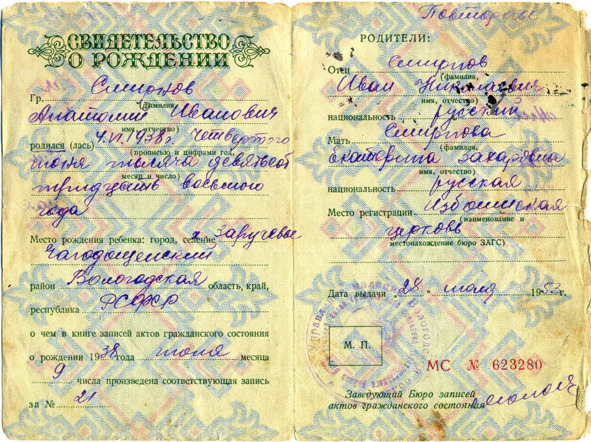 СВИДЕТЕЛЬСТВО
О РОЖДЕНИИ
Гр. Смирнов
(фамилия
Анатолий Иванович
имя, отчество)
родился (лась) 4.VI.1938г. Четвертого
(прописью и цифрами год,
июня тысяча девятьсот
месяц и число)
тридцать восьмого
года
Место рождения ребенка: город, селение х. Заручевье
Чагодощенский
район Вологодская область, край,
республика РСФСР
о чем в книге записей актов гражданского состояния
о рождении 1938 года июня месяца
9 числа произведена соответствующая запись
за № 21
Повторное
РОДИТЕЛИ:
Отец Смирнов
(фамилия,
Иван Николаевич
имя, отчество)
национальность русский
Мать Смирнова
(фамилия,
Екатерина Захаровна
имя, отчество)
национальность русская
Место регистрации Избоищская
(наименование и
церковь
местонахождение бюро ЗАГС)
Дата выдачи 28 июля 1953г.
М. П.
МС № 623280
Заведующий Бюро записей
актов гражданского состояния